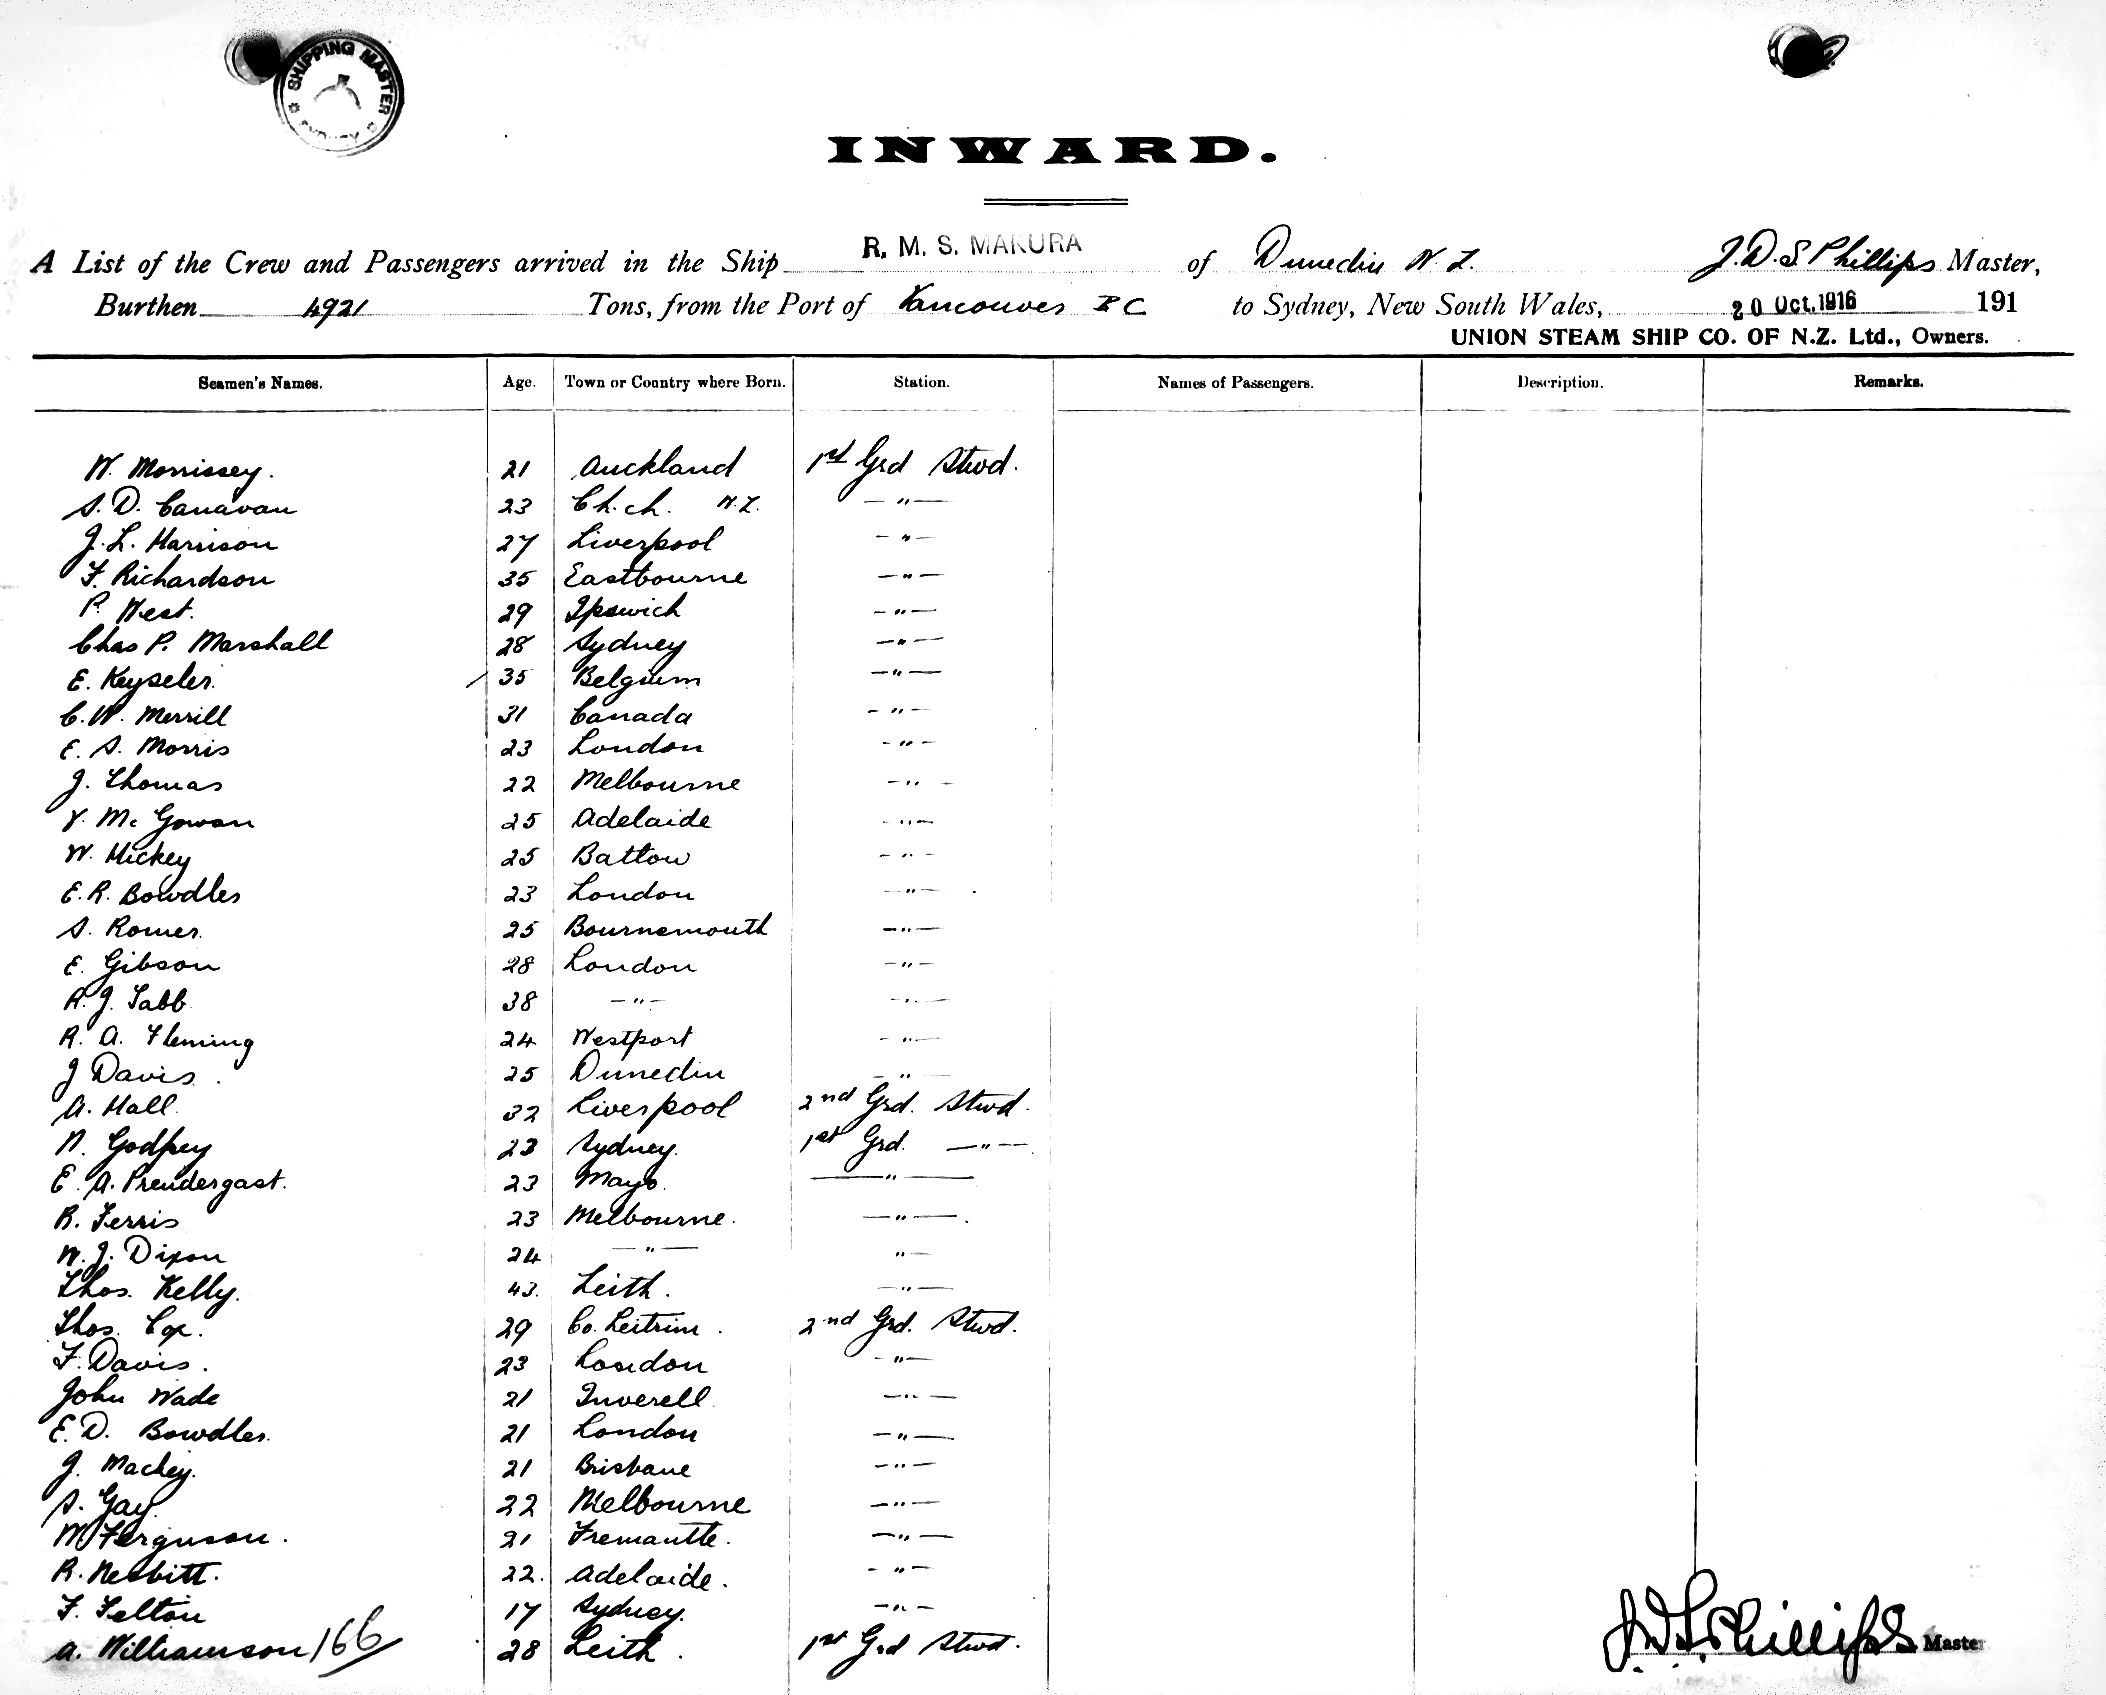 SHIPPING MASTER SYDNEY
INWARD.
A List of the Crew and Passengers arrived in the Ship R. M. S. MAKURA of Dunedin N.Z. J.D.S Phillips Master,
Burthen 4921 Tons, from the Port of Vancouver B C to Sydney, New South Wales, 20 Oct. 1916 191
UNION STEAM SHIP CO. OF N.Z. Ltd., Owners.
Seamen's Names. Age. Town or Country where Born. Station. Names of Passengers. Description. Remarks.
W. Morrissey. 21 Auckland 1st Grd Stwd.
S. D. Canavan 23 Ch.ch. N.Z. — " —
J. L. Harrison 27 Liverpool — " —
F. Richardson 35 Eastbourne — " —
P. West. 29 Ipswich — " —
Chas P. Marshall 28 Sydney — " —
E. Keyseler. 35 Belgium — " —
C. W. Merrill 31 Canada — " —
E. S. Morris 23 London — " —
J. Thomas 22 Melbourne — " —
Mc Gowan 25 Adelaide — " —
W. Hickey 25 Batlow — " —
E. R. Bowdler 23 London — " —
S. Romer. 25 Bournemouth — " —
E. Gibson 28 London — " —
R. J. Tabb 38 — " — — " —
R. A. Fleming 24 Westport — " —
J Davis. 25 Dunedin — " —
A. Hall 32 Liverpool 2nd Grd. Stwd.
N. Godfrey 23 Sydney. 1st Grd. — " —
E. A. Prendergast. 23 Mayo. — " —
R. Ferris 23 Melbourne. — " —
W. J. Dixon 24 — " — " —
Thos. Kelly. 43. Leith. — " —
Thos. Cox. 29 Co. Leitrim. 2nd Grd. Stwd.
F. Davis. 23 London — " —
John Wade 21 Inverell — " —
E. D. Bowdler. 21 London — " —
J. Mackey. 21 Brisbane — " —
S. Gay. 22 Melbourne — " —
M Ferguson. 21 Fremantle. — " —
R. Nesbitt. 22. Adelaide. — " —
F. Felton 17 Sydney. — " —
A. Williamson 166 28 Leith. 1st Grd Stwd.
J.D.S Phillips Master